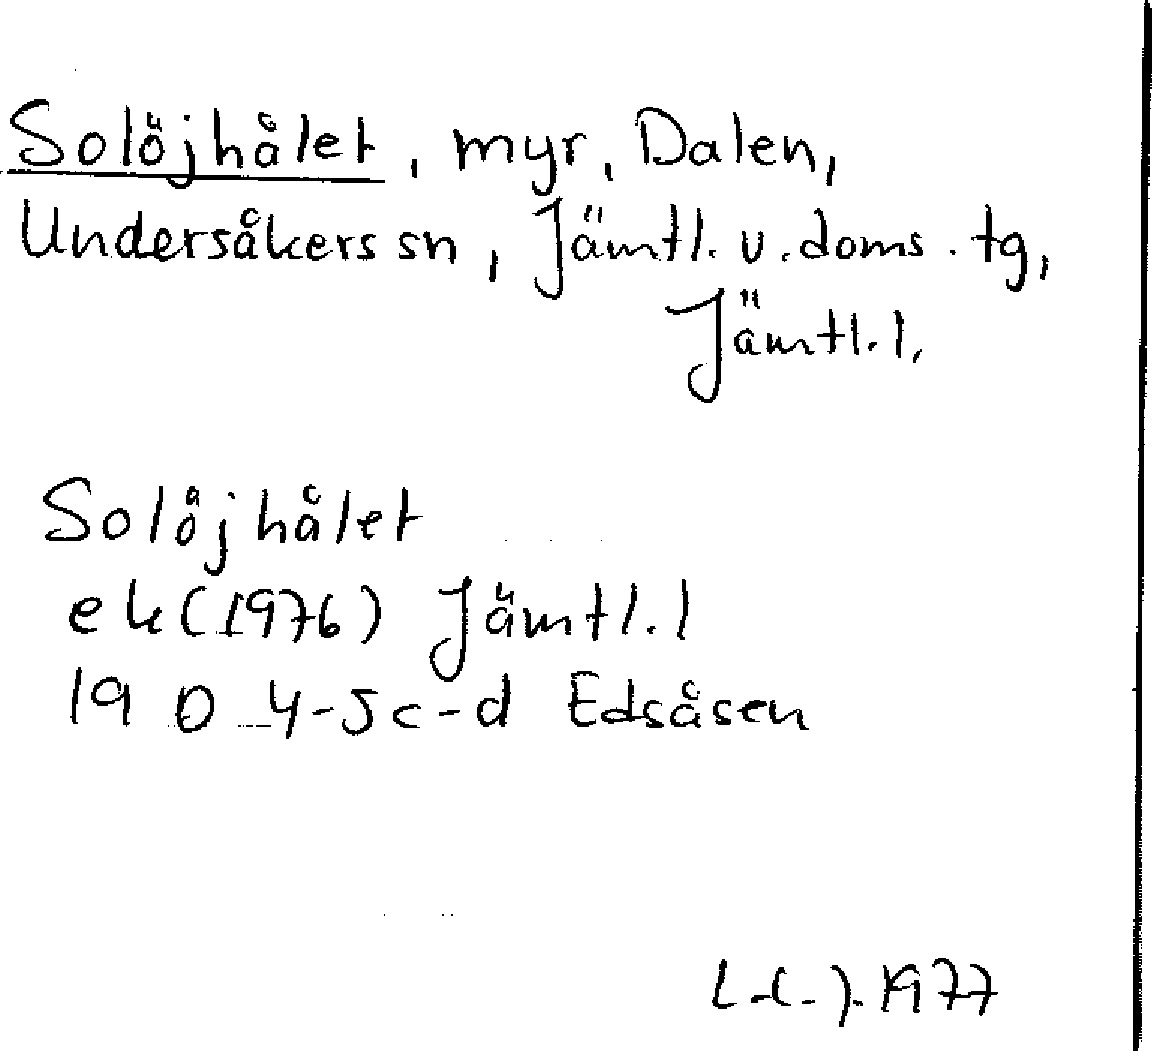 Solöjhålet, myr, Dalen,
Undersåkers sn, Jämtl. v. doms. tg,
Jämtl. l.
Solöjhålet
ek (1976) Jämtl. l
19 D 4-5 c-d Edsåsen
1977